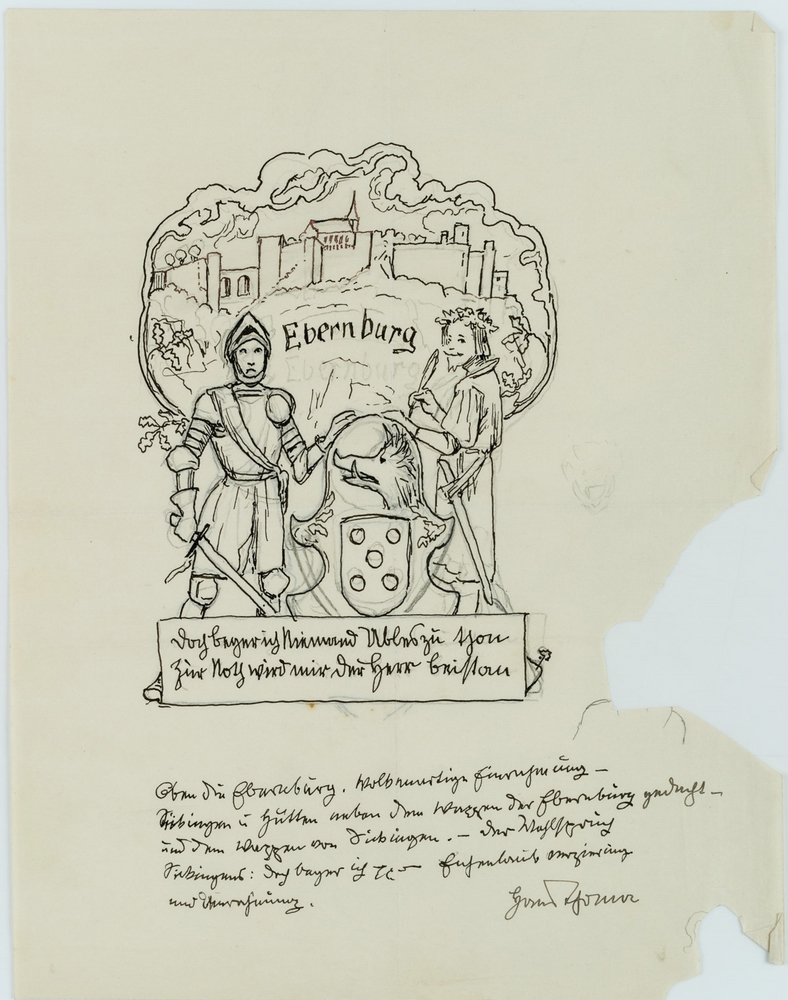 Ebernburg
Ebernburg
Doch beger ich Niemand Ubles zu thon
Zur Noth wird mir der Herr beistan
Oben die Ebernburg. Wolkenartige Einrahmung –
Sickingen u Hutten neben dem Wappen der Ebernburg gedacht –
und dem Wappen von Sickingen. – Der Wahlspruch
Sickingens: Doch beger ich – Eichenlaub verzierung
und Umrahmung.
Hans Thoma